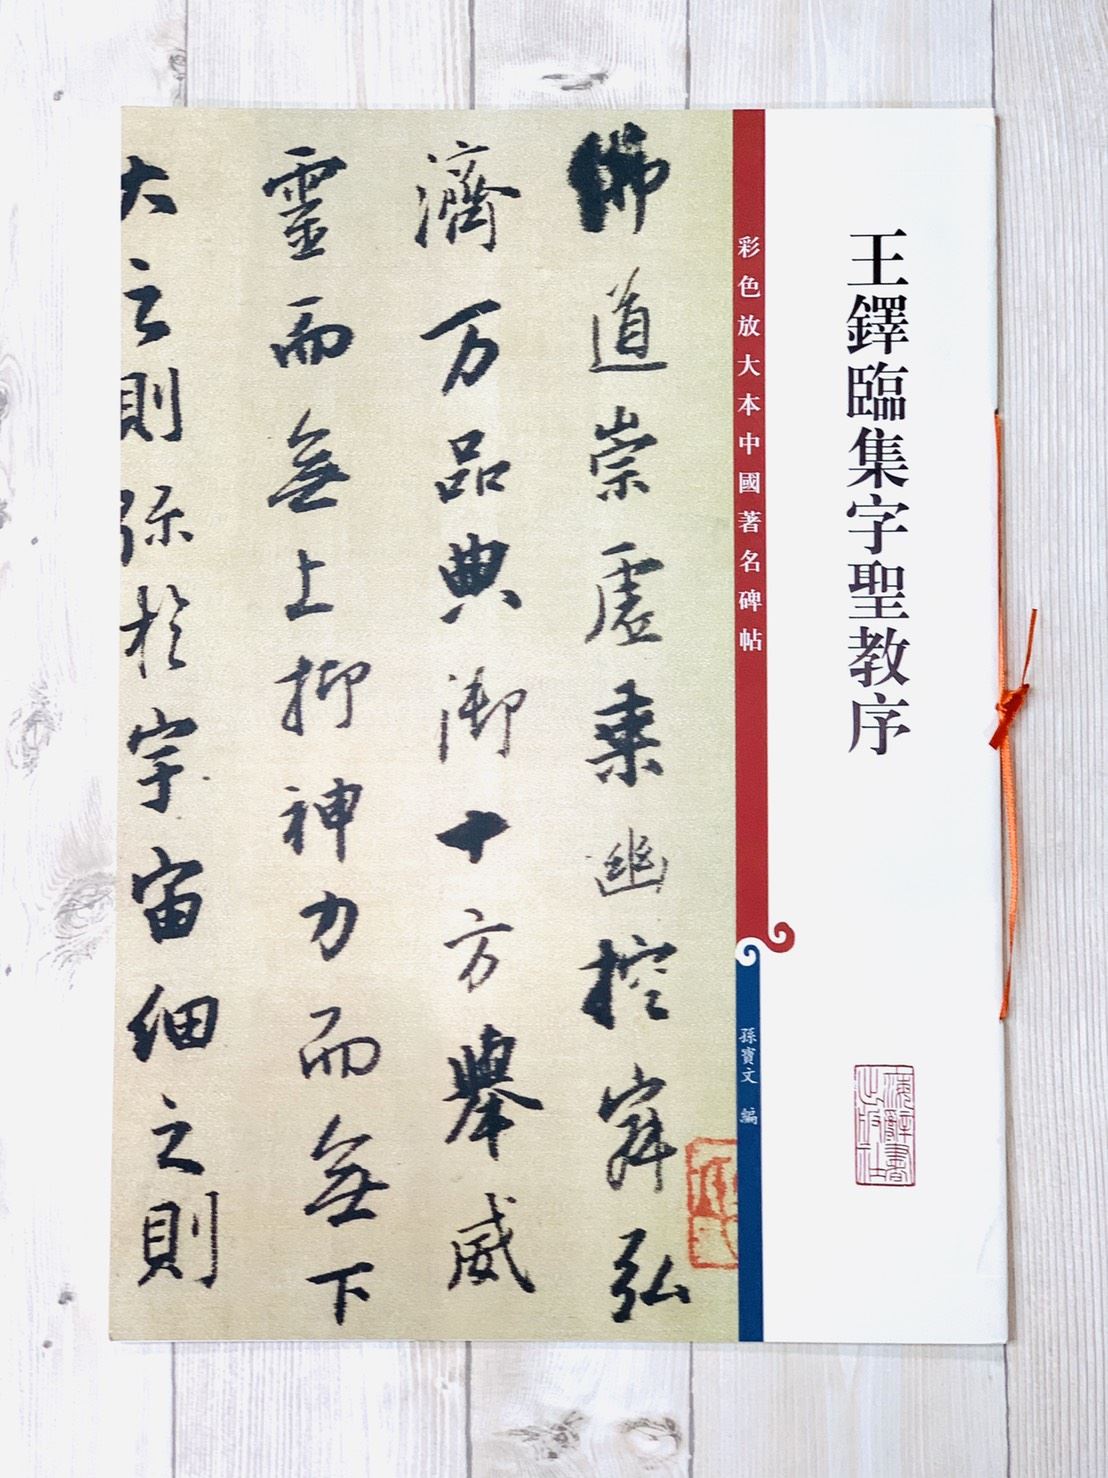 王鐸臨集字聖教序
彩色放大本中國著名碑帖
孫寶文 編
海辭書
出版社
佛道崇虛乘幽控寂弘
濟万品典御十方舉威
靈而無上抑神力而無下
大之則弥於宇宙細之則